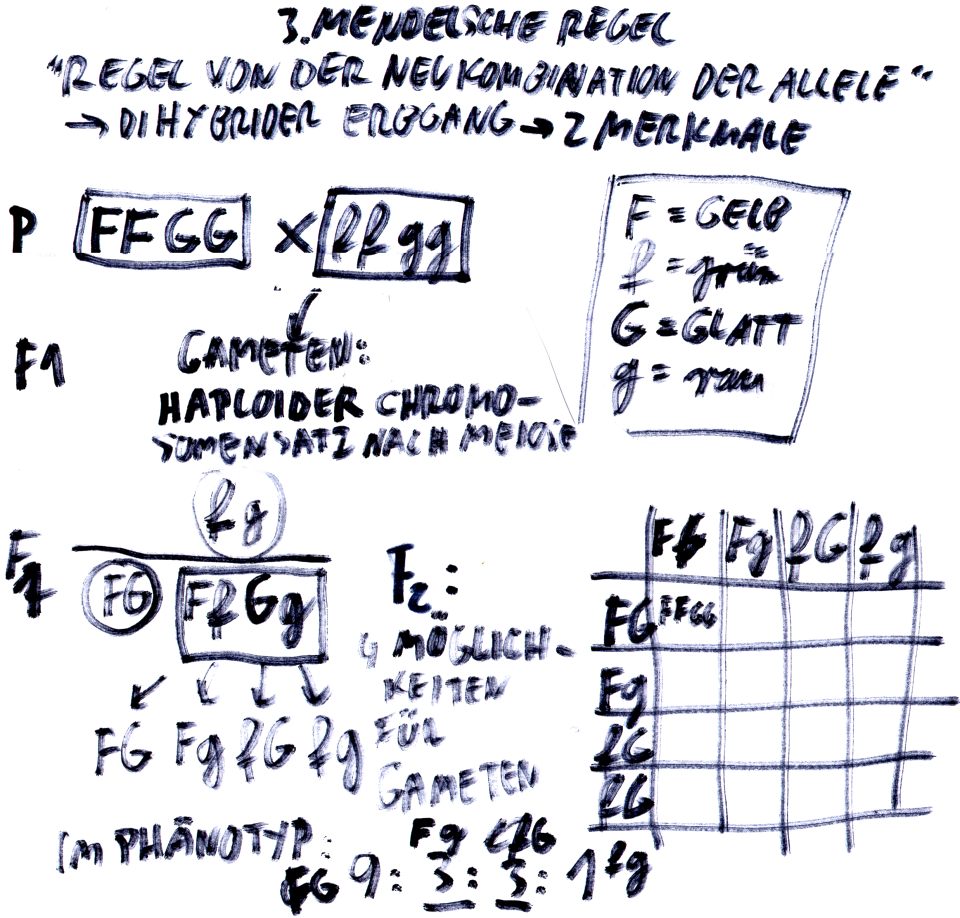 3. MENDELSCHE REGEL
"REGEL VON DER NEUKOMBINATION DER ALLELE"
→ DIHYBRIDER ERBGANG → 2 MERKMALE
P FFGG × ffgg
F = GELB
f = grün
G = GLATT
g = rau
F1 GAMETEN:
HAPLOIDER CHROMO-
SOMENSATZ NACH MEIOSE
fg
F1 FG FfGg
FG Fg fG fg
F2:
4 MÖGLICH-
KEITEN
FÜR
GAMETEN
FG Fg fG fg
FG FFGG
Fg
fG
fG
IM PHÄNOTYP:
Fg fG
FG 9: 3: 3: 1 fg